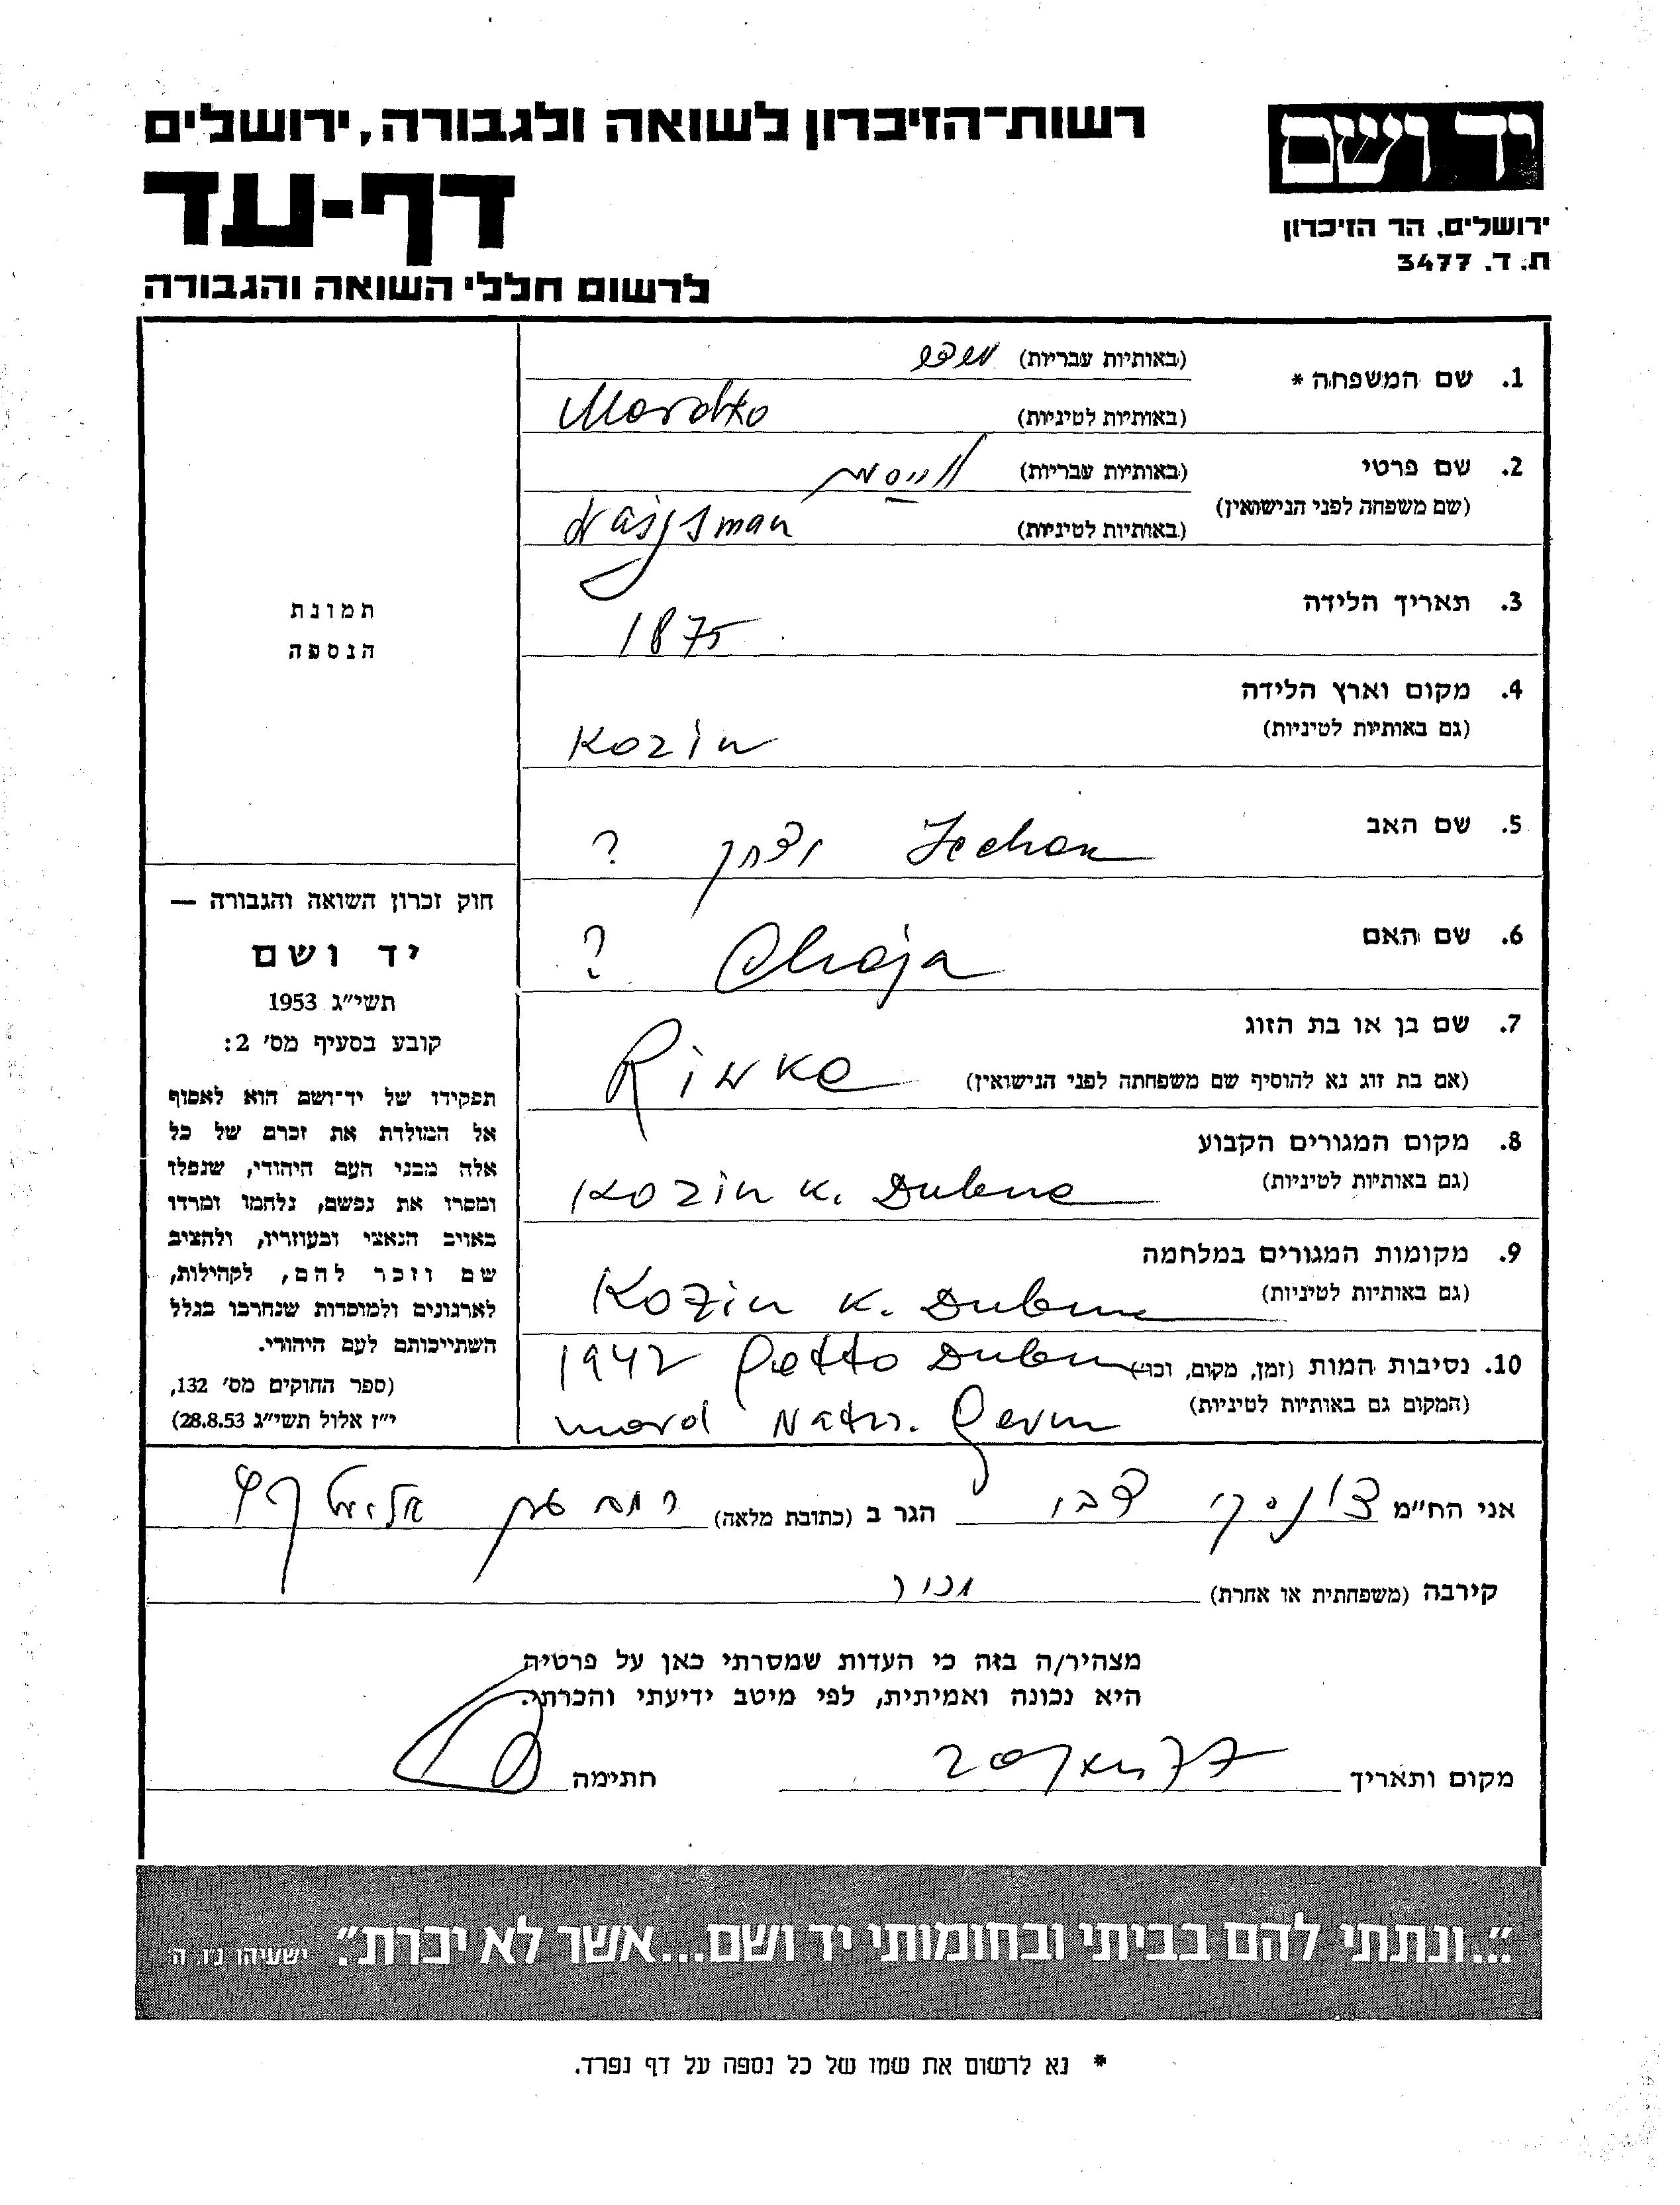 רשות־הזיכרון לשואה ולגבורה, ירושלים
דף-עד
לרשום חללי השואה והגבורה
יד ושם
ירושלים, הר הזיכרון
ת. ד. 3477
1. שם המשפחה *
(באותיות עבריות)
(באותיות לטיניות) Mordko
2. שם פרטי
(שם משפחה לפני הנישואין)
(באותיות עבריות)
(באותיות לטיניות) Wajsman
3. תאריך הלידה 1875
4. מקום וארץ הלידה
(גם באותיות לטיניות) Kozin
5. שם האב יצחק ?
6. שם האם Chaja ?
7. שם בן או בת הזוג
(אם בת זוג נא להוסיף שם משפחתה לפני הנישואין) Riwke
8. מקום המגורים הקבוע
(גם באותיות לטיניות) Kozin k. Dubna
9. מקומות המגורים במלחמה
(גם באותיות לטיניות) Kozin k. Dubna
10. נסיבות המות (זמן, מקום, וכו') 1942 Getto Dubna
(המקום גם באותיות לטיניות) mord
תמונת
הנספה
חוק זכרון השואה והגבורה —
יד ושם
תשי״ג 1953
קובע בסעיף מס׳ 2:
תפקידו של יד־ושם הוא לאסוף
אל המולדת את זכרם של כל
אלה מבני העם היהודי, שנפלו
ומסרו את נפשם, נלחמו ומרדו
באויב הנאצי ובעוזריו, ולהציב
שם וזכר להם, לקהילות,
לארגונים ולמוסדות שנחרבו בגלל
השתייכותם לעם היהודי.
(ספר החוקים מס׳ 132,
י״ז אלול תשי״ג 28.8.53)
אני הח״מ
הגר ב (כתובת מלאה)
קירבה (משפחתית או אחרת) מכיר
מצהיר/ה בזה כי העדות שמסרתי כאן על פרטיה
היא נכונה ואמיתית, לפי מיטב ידיעתי והכרתי.
מקום ותאריך
חתימה
״...ונתתי להם בביתי ובחומותי יד ושם...אשר לא יכרת״. ישעיהו נ״ו, ה׳
* נא לרשום את שמו של כל נספה על דף נפרד.